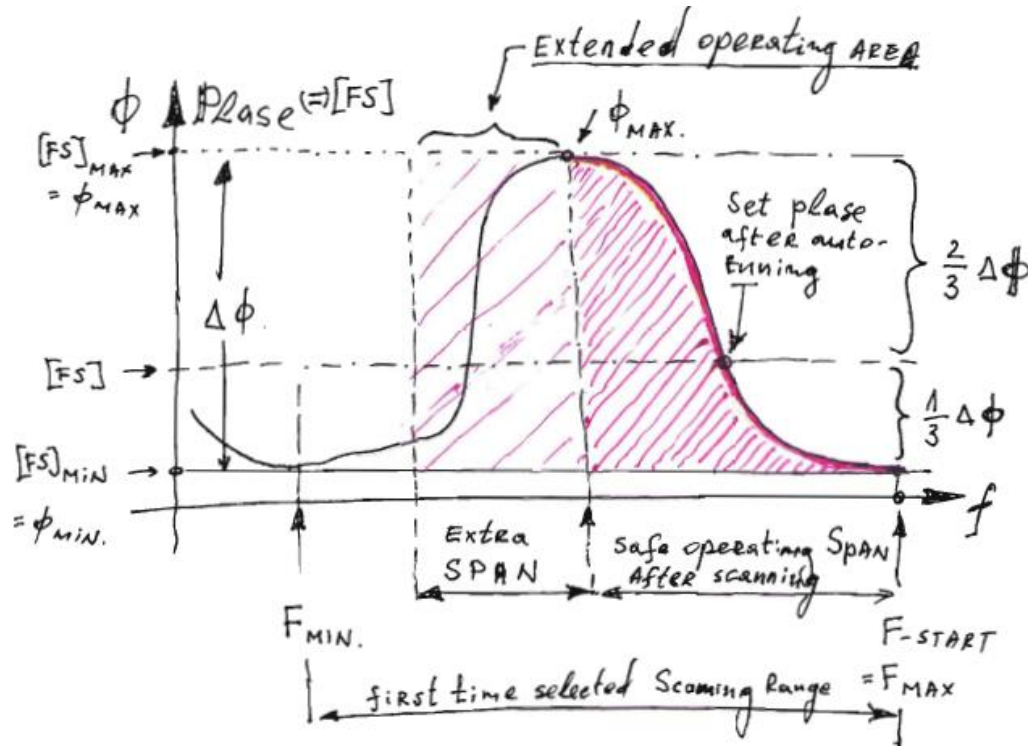 Extended operating AREA
ϕ Plase (=) [FS]
ϕ MAX.
[FS] MAX
= ϕ MAX
Set plase
after auto-
tunning
2/3 Δϕ
Δϕ.
[FS]
1/3 Δϕ
[FS] MiN
= ϕ MiN.
f
Extra
SPAN
Safe operating SpAN
After scanning
F MIN.
F-START
= F MAX
first time selected Scanning Range